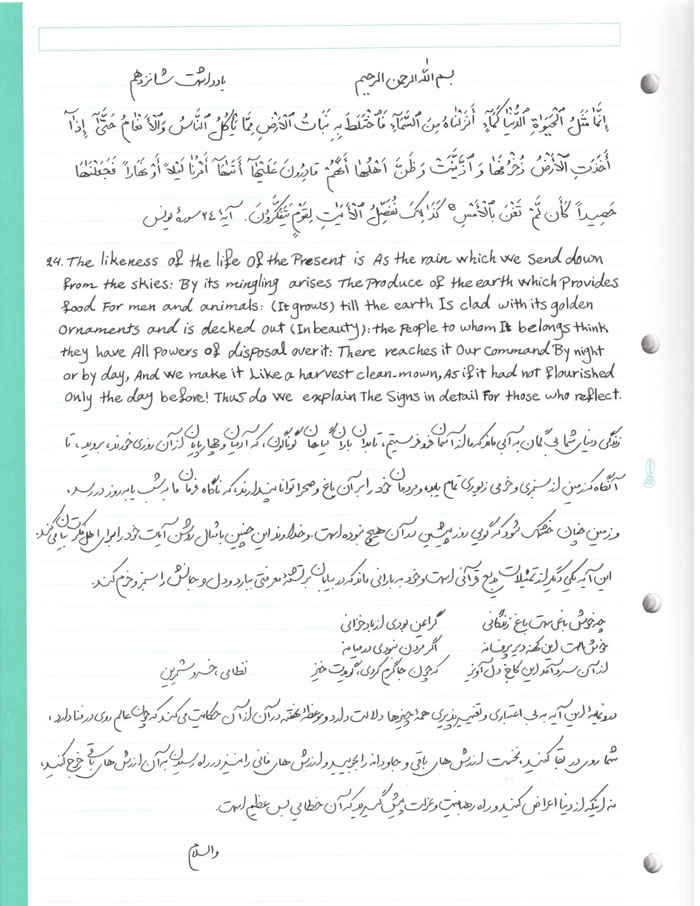 بسم الله الرحمن الرحیم یادداشت شانزدهم
إِنَّمَا مَثَلُ ٱلْحَيَوٰةِ ٱلدُّنْيَا كَمَآءٍ أَنزَلْنَاهُ مِنَ ٱلسَّمَآءِ فَٱخْتَلَطَ بِهِ نَبَاتُ ٱلْأَرْضِ مِمَّا يَأْكُلُ ٱلنَّاسُ وَٱلْأَنْعَامُ حَتَّىٰٓ إِذَآ
أَخَذَتِ ٱلْأَرْضُ زُخْرُفَهَا وَٱزَّيَّنَتْ وَظَنَّ أَهْلُهَا أَنَّهُمْ قَادِرُونَ عَلَيْهَآ أَتَىٰهَآ أَمْرُنَا لَيْلًا أَوْ نَهَاراً فَجَعَلْنَاهَا
حَصِيداً كَأَن لَّمْ تَغْنَ بِٱلْأَمْسِ كَذَٰلِكَ نُفَصِّلُ ٱلْأَيَٰتِ لِقَوْمٍ يَتَفَكَّرُونَ. آیهٔ ۲۴ سورهٔ یونس
24. The likeness of the life of the Present is As the rain which we send down
from the skies: By its mingling arises The Produce of the earth which Provides
food For men and animals: (It grows) till the earth Is clad with its golden
Ornaments and is decked out (In beauty): the People to whom It belongs think
they have All Powers of disposal over it: There reaches it Our Command By night
or by day, And we make it Like a harvest clean-mown, As if it had not flourished
Only the day before! Thus do We explain The Signs in detail For those who reflect.
زندگی دنیای شما بی گمان به آبی ماند که ما از آسمان فرو فرستیم، تا بدان باران گیاهان گوناگون، که آدمیان و چهارپایان از آن روزی خورند، بروید، تا
آنگاه که زمین از سبزی و خرمی زیوری تمام یابد، و مردمان خود را بر آن باغ و صحرا توانا پندارند، که ناگاه فرمان ما به شب یا به روز در رسد،
و زمین چنان خشک شود که گویی روز پیشین در آن هیچ نبوده است. و خداوند این چنین با مثال روشن آیات خود را برای اهل فکرت بیان می کند.
این آیه یکی دیگر از تمثیلات بدیع قرآنی است و خود به بارانی ماند که در بیابان بر تشنهٔ معرفتی ببارد و دل و جانش را سبز و خرم کند.
چه خوش باغی ست باغ زندگانی گر ایمن بودی از باد خزانی
خوش است این کهنه دیر پر فسانه اگر مردن نبودی در میانه
از آن سرد آمد این کاخ دلاویز که چون جا گرم کردی، گویدت خیز نظامی، خسرو شیرین
درونمایهٔ این آیه به بی اعتباری و تغییر پذیری همهٔ چیزها دلالت دارد و موعظهٔ نهفته در آن از آن حکایت می کند که چون عالم روی در فنا دارد،
شما روی در بقا کنید، نخست ارزش های باقی و جاودانه را بجویید و ارزش های فانی را نیز در راه رسیدن به آن ارزش های باقی خرج کنید،
نه اینکه از دنیا اعراض کنید و راه رهبانیت و عزلت پیش گیرید که آن خطایی بس عظیم است.
والسلام